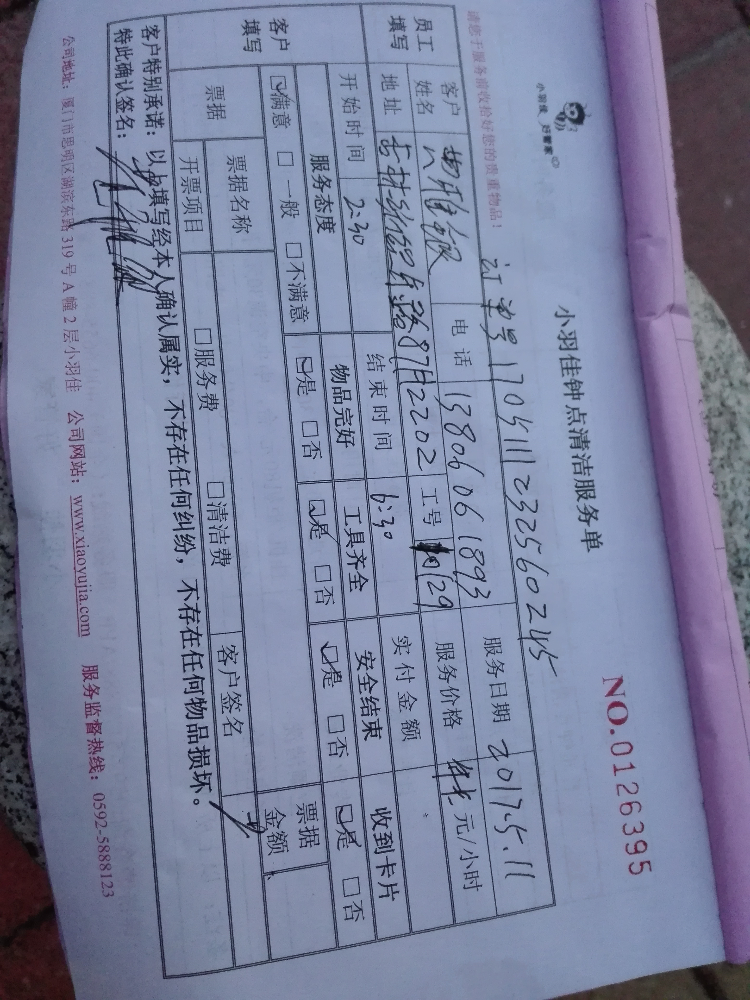 小羽佳 好管家
小羽佳钟点清洁服务单
NO.0126395
请您于服务前收拾好您的贵重物品!
订单号 1705111232560245
员工填写
客户姓名 电话 13806061893 服务日期 2017.5.11
地址 87# 2202 工号 服务价格 元/小时
开始时间 2:30 结束时间 6:30 实付金额
客户填写
服务态度 物品完好 工具齐全 安全结束 收到卡片
☑满意 □一般 □不满意 ☑是 □否 ☑是 □否 ☑是 □否 ☑是 □否
票据 票据名称 客户签名 票据金额
开票项目 □服务费 □清洁费
客户特别承诺:以上填写经本人确认属实,不存在任何纠纷,不存在任何物品损坏。
特此确认签名:
公司地址:厦门市思明区湖滨东路 319 号 A 幢 2 层小羽佳 公司网站:www.xiaoyujia.com 服务监督热线:0592-5888123